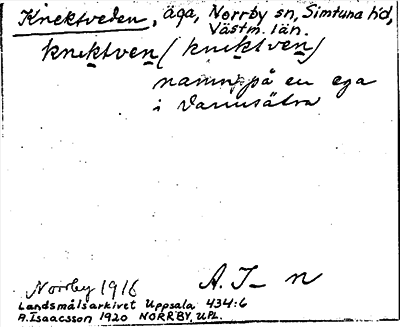 Knektveden, äga, Norrby sn, Simtuna hd,
Västm. län.
knektven (knektven)
namn på en ega
i Vannsätra
Norrby 1916 A. I–n
Landsmålsarkivet Uppsala 434:6
A. Isaacsson 1920 NORRBY, UPL.